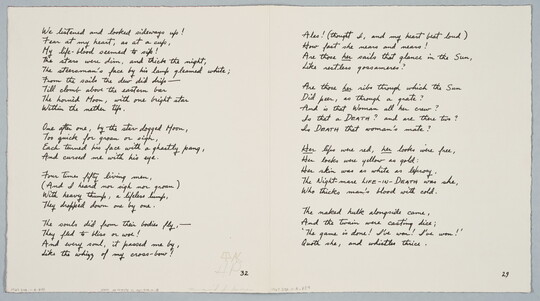 We listened and looked sideways up!
Fear at my heart, as at a cup,
My life-blood seemed to sip!
The stars were dim, and thick the night,
The steersman's face by his lamp gleamed white;
From the sails the dew did drip—
Till clomb above the eastern bar
The hornèd Moon, with one bright star
Within the nether tip.

One after one, by the star-dogged Moon,
Too quick for groan or sigh,
Each turned his face with a ghastly pang,
And cursed me with his eye.

Four times fifty living men,
(And I heard nor sigh nor groan)
With heavy thump, a lifeless lump,
They dropped down one by one.

The souls did from their bodies fly,—
They fled to bliss or woe!
And every soul, it passed me by,
Like the whizz of my cross-bow!
32

Alas! (thought I, and my heart beat loud)
How fast she nears and nears!
Are those her sails that glance in the Sun,
Like restless gossameres?

Are those her ribs through which the Sun
Did peer, as through a grate?
And is that Woman all her crew?
Is that a DEATH? and are there two?
Is DEATH that woman's mate?

Her lips were red, her looks were free,
Her locks were yellow as gold:
Her skin was as white as leprosy,
The Night-mare LIFE-IN-DEATH was she,
Who thicks man's blood with cold.

The naked hulk alongside came,
And the twain were casting dice;
'The game is done! I've won! I've won!'
Quoth she, and whistles thrice.
29